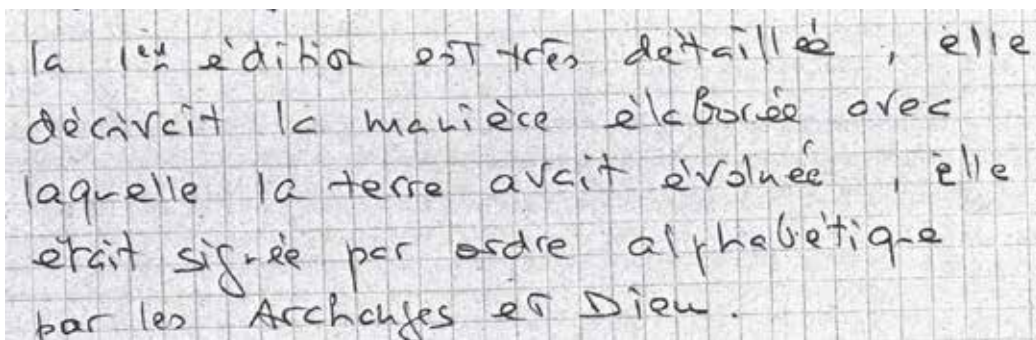 la 1èr édition est très détaillée, elle
décrivait la manière élaborée avec
laquelle la terre avait évoluée, elle
était signée par ordre alphabétique
par les Archanges et Dieu.